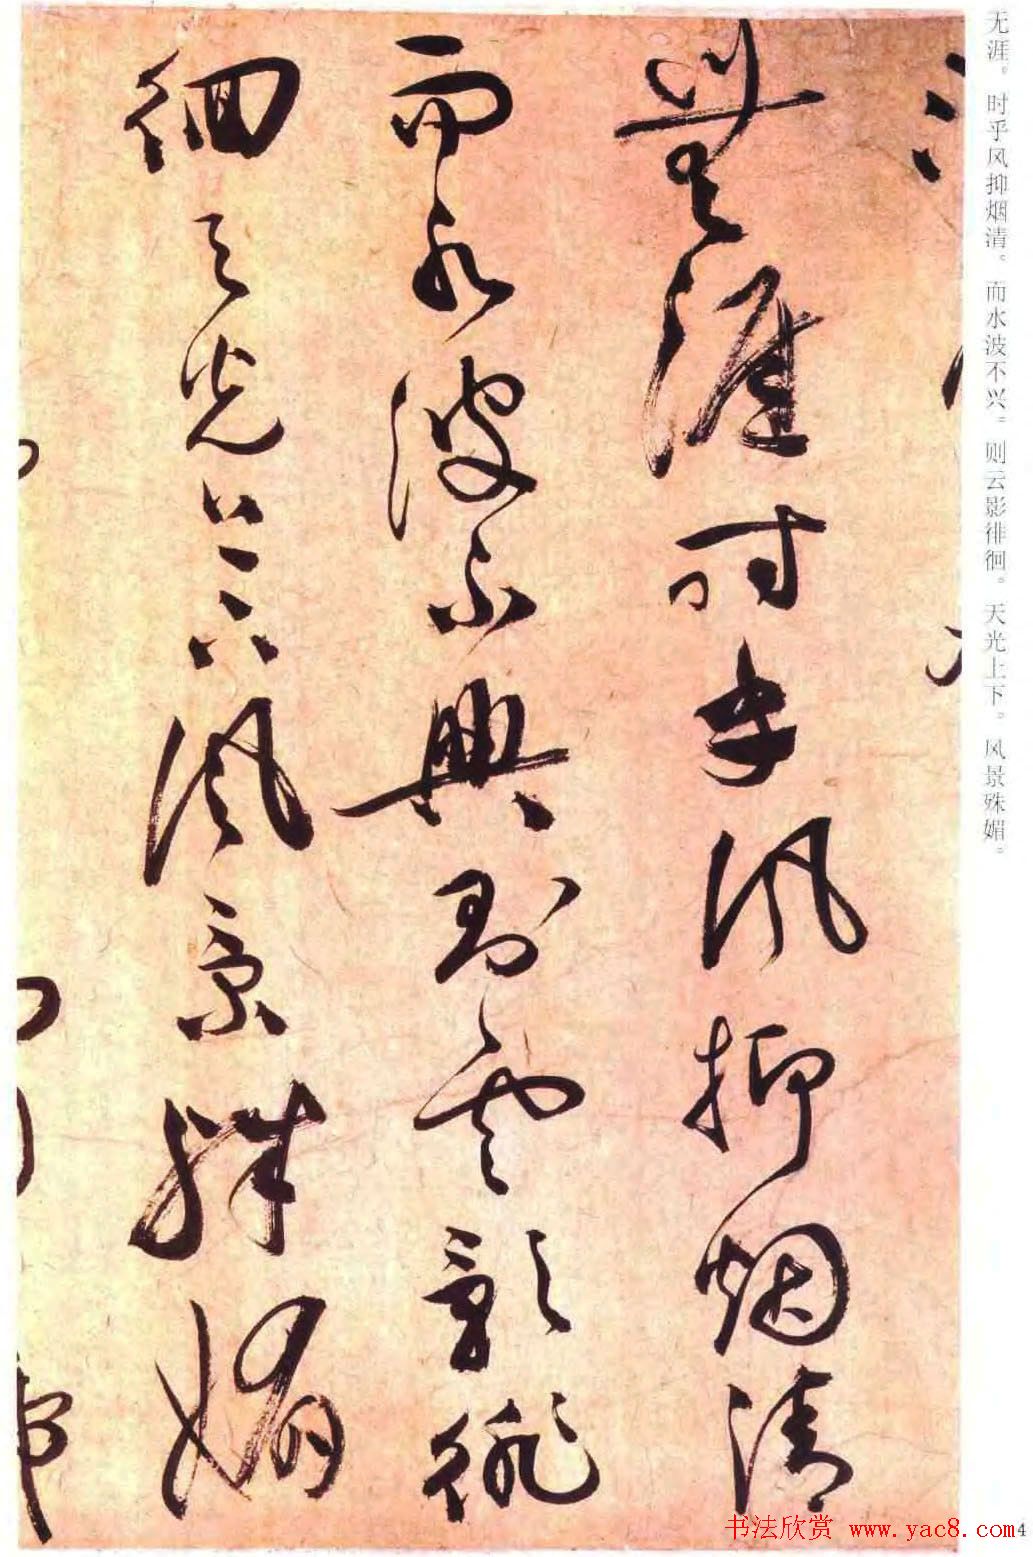 无涯。时乎风抑烟清。而水波不兴。则云影徘徊。天光上下。风景殊媚。
無涯時乎風抑烟清
而水波不興則雲影徘
徊天光上下風景殊媚
书法欣赏 www.yac8.com
4